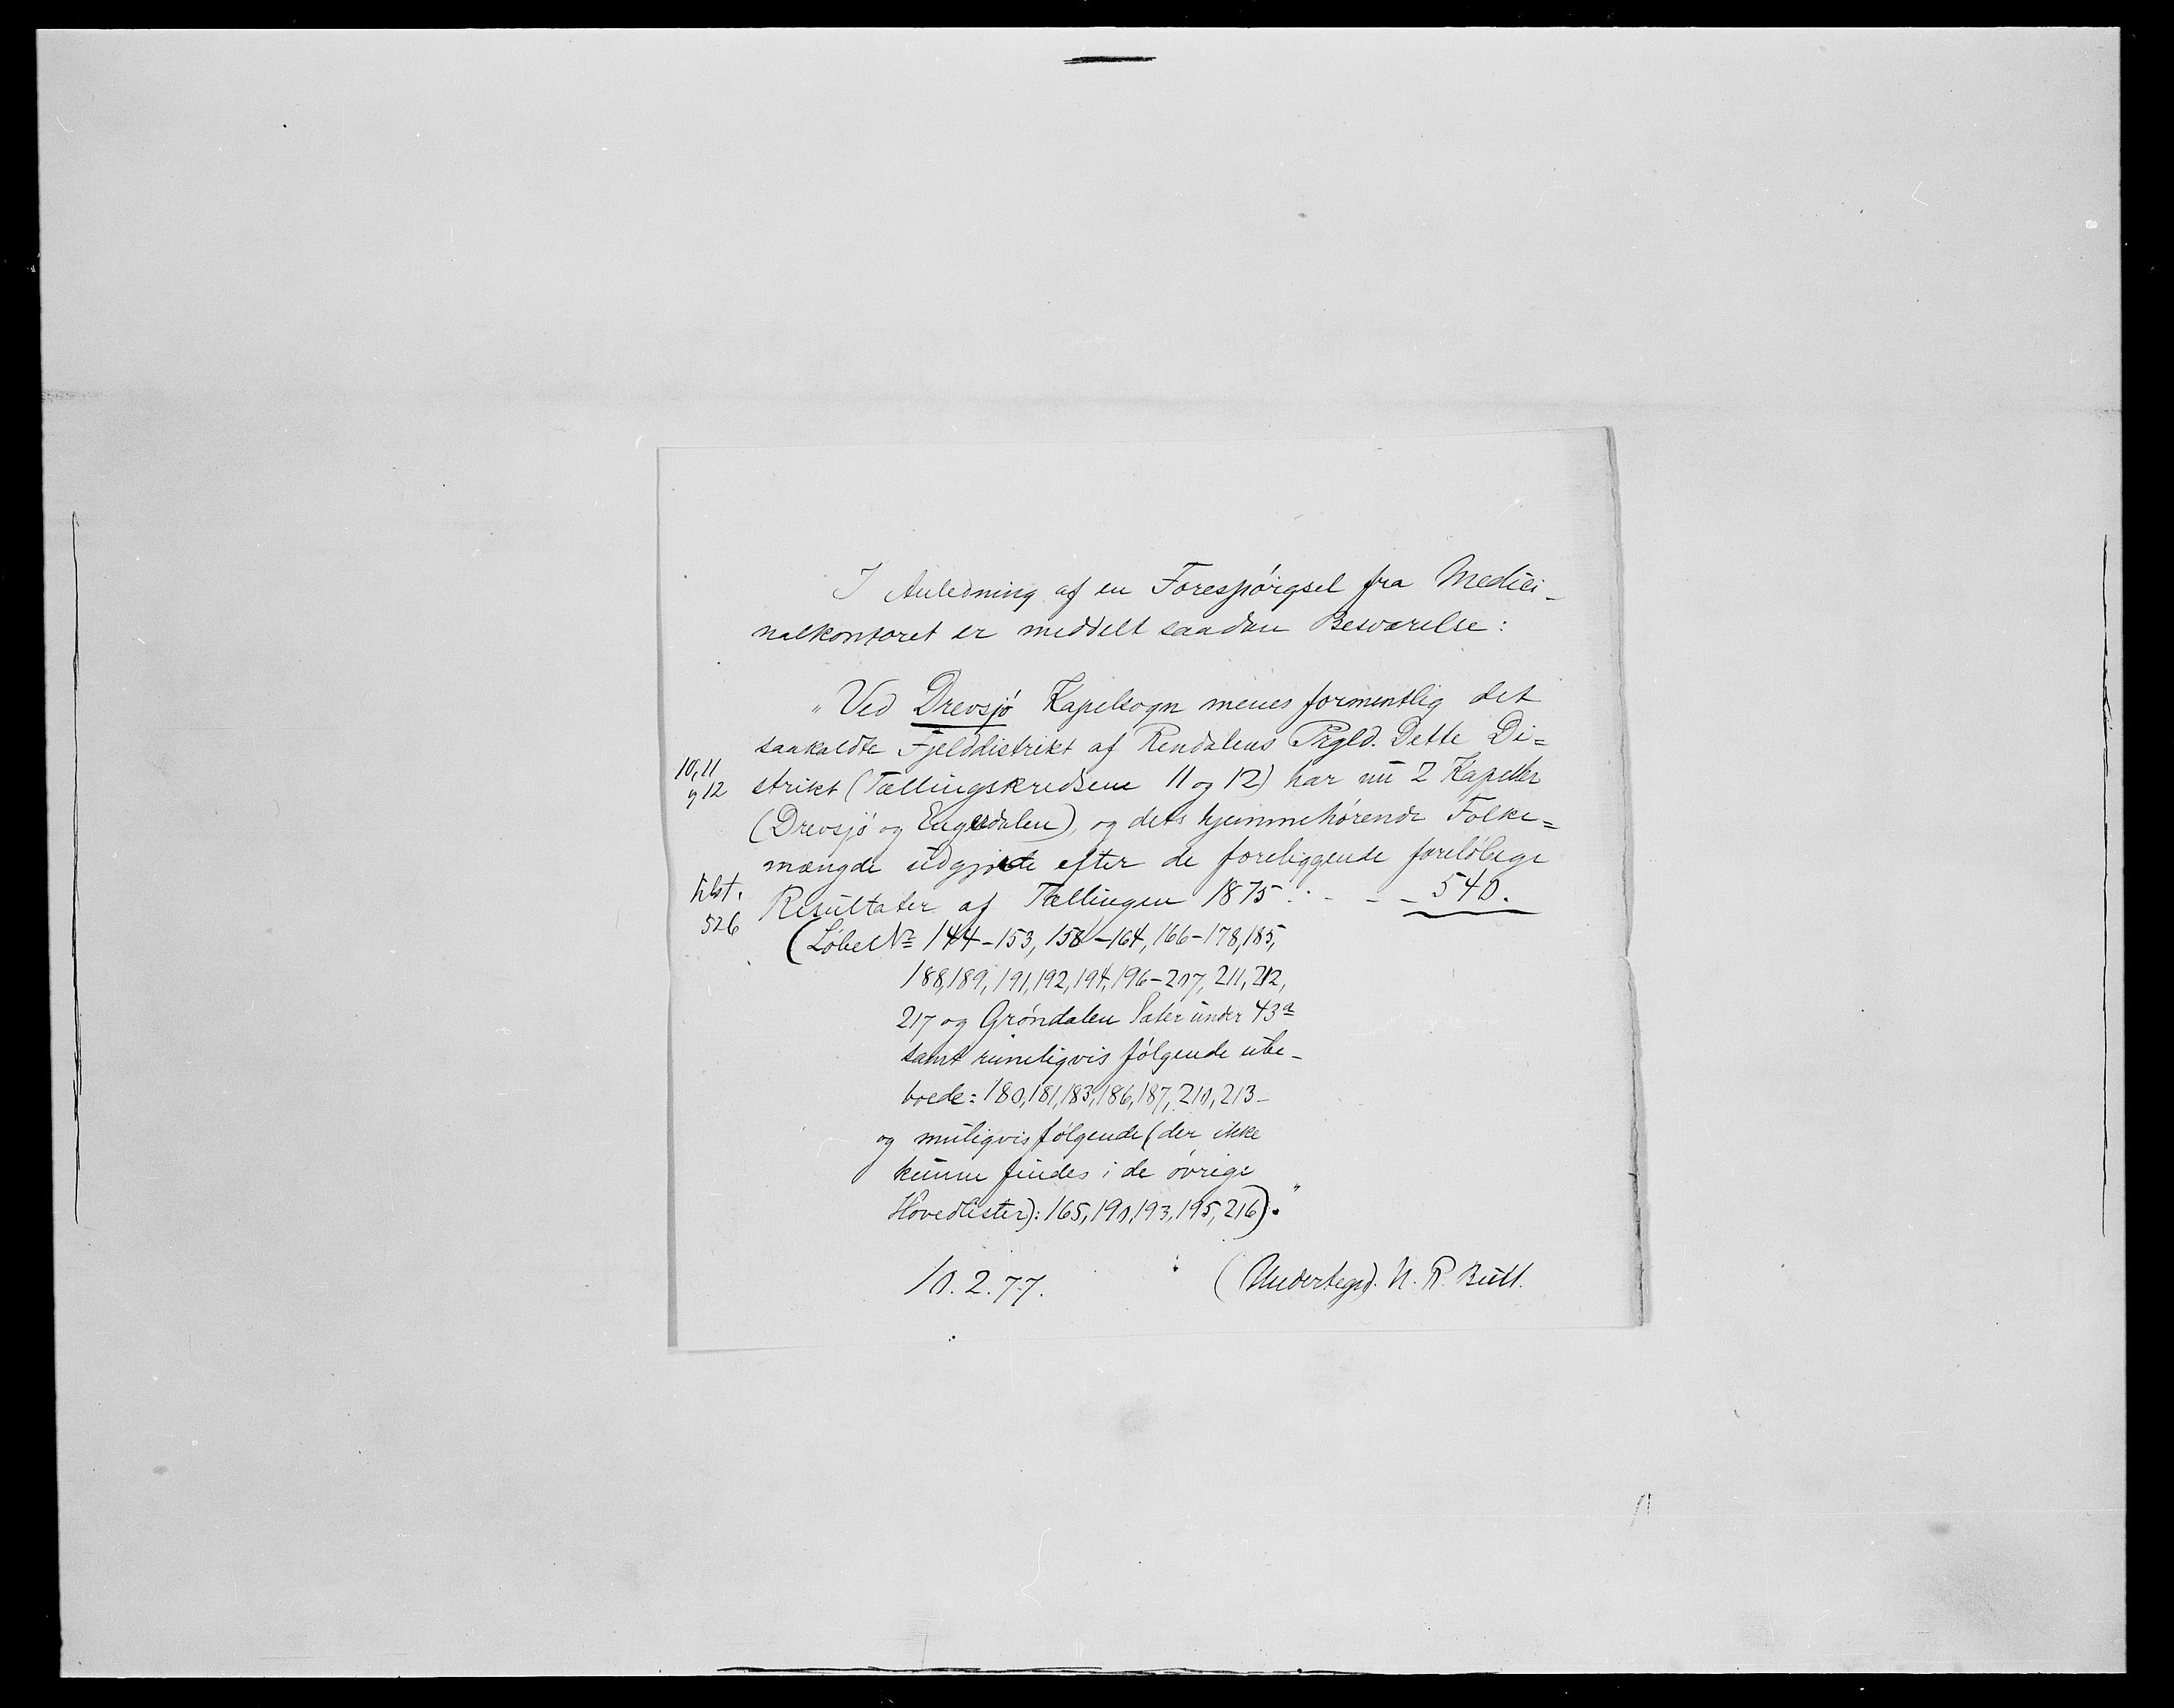 I Anledning af en Forespörgsel fra Medici-
nalkontoret er meddelt saadan Besvarelse:
"Ved Drevsjö Kapelsogn menes formentlig det
saakaldte Fjelddistrikt af Rendalens Prgld. Dette Di=
10, 11
og 12
strikt (Tællingskredsene 11 og 12) har nu 2 Kapeller
(Drevsjö og Engerdalen), og dets hjemmehörende Folke=
mængde udgjorde efter de foreliggende forelöbige
tilst.
526
Resultater af Tællingen 1875 . - - - 540.
(Löbe No 144-153, 158-164, 166-178, 185,
188, 189, 191, 192, 194, 196-207, 211, 212,
217 og Gröndalen Sæter under 43a
samt rimeligvis fölgende ube-
boede: 180, 181, 183, 186, 187, 210, 213-
og muligvis fölgende (der ikke
kunne findes i de övrige
Hovedlister): 165, 190, 193, 195, 216)."
10. 2. 77.
(Undertegnd). N. R. Bull.